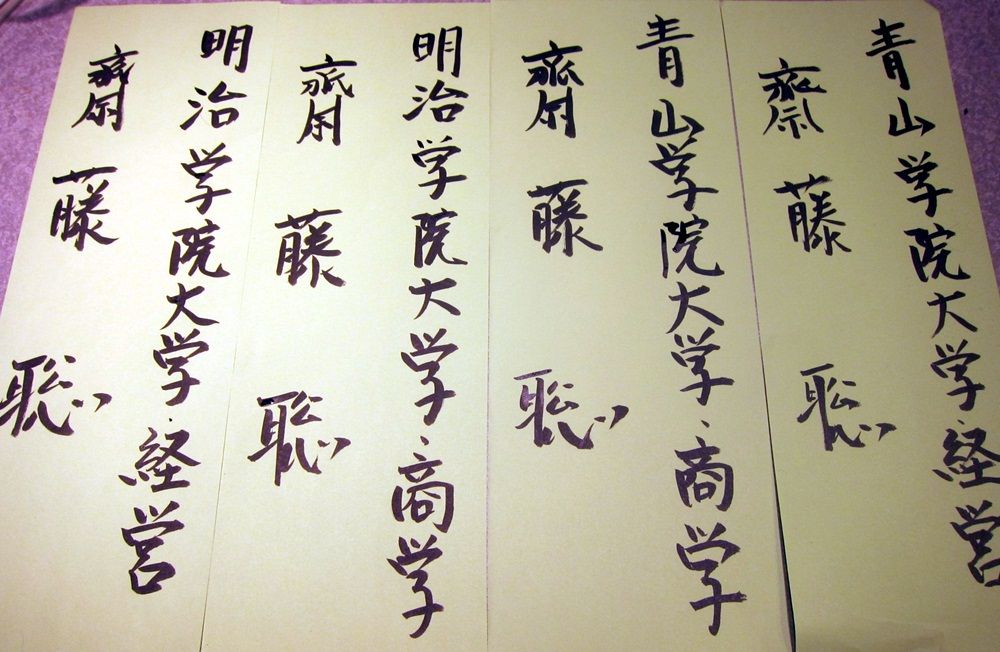 青山学院大学・経営
齋藤 聡
青山学院大学・商学
齋藤 聡
明治学院大学・商学
齋藤 聡
明治学院大学・経営
齋藤 聡